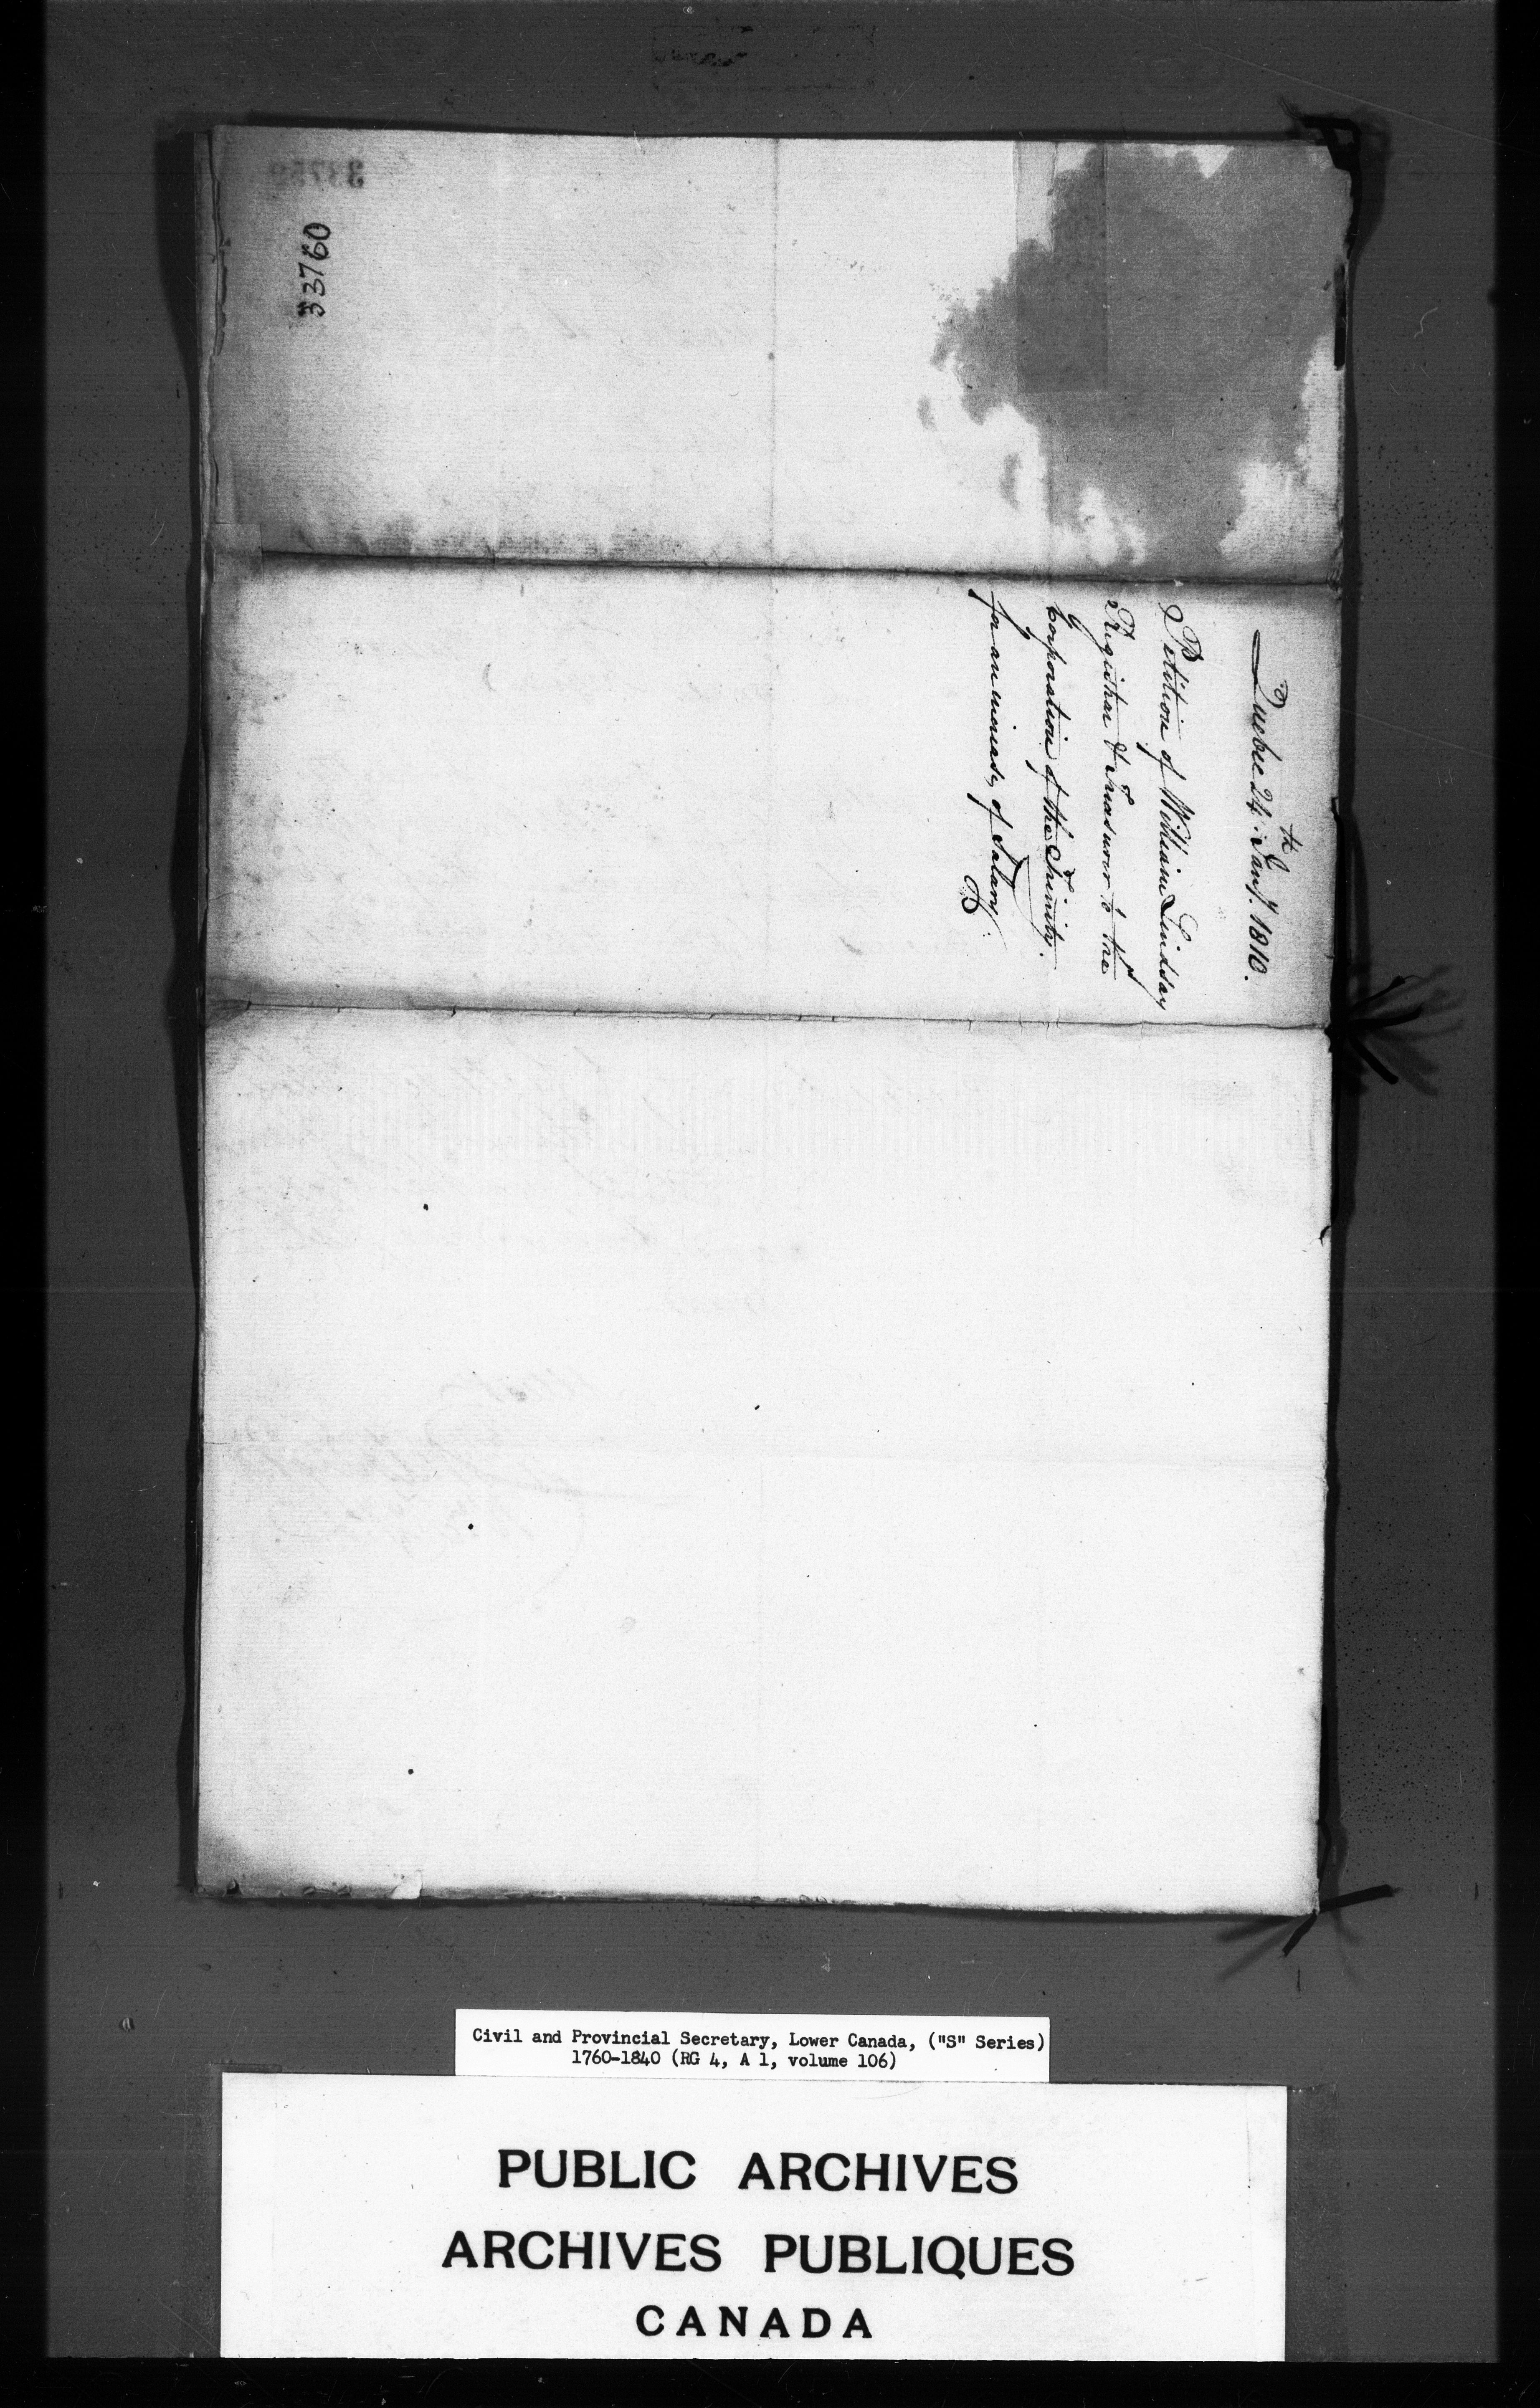 33760
Quebec 24th Jany. 1810.
Petition of William Lindsay
Registrar & Treasurer to the
Corporation of the Trinity.
for an increase of Salary.
B
Civil and Provincial Secretary, Lower Canada, ("S" Series)
1760-1840 (RG 4, A 1, volume 106)
PUBLIC ARCHIVES
ARCHIVES PUBLIQUES
CANADA